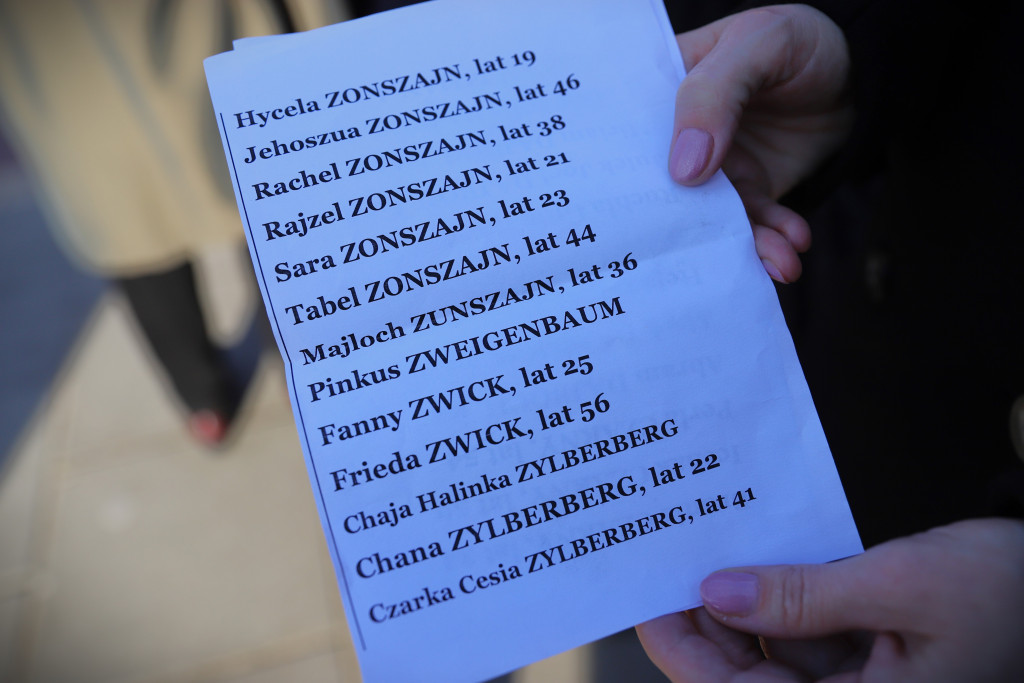 Hycela ZONSZAJN, lat 19
Jehoszua ZONSZAJN, lat 46
Rachel ZONSZAJN, lat 38
Rajzel ZONSZAJN, lat 21
Sara ZONSZAJN, lat 23
Tabel ZONSZAJN, lat 44
Majloch ZUNSZAJN, lat 36
Pinkus ZWEIGENBAUM
Fanny ZWICK, lat 25
Frieda ZWICK, lat 56
Chaja Halinka ZYLBERBERG
Chana ZYLBERBERG, lat 22
Czarka Cesia ZYLBERBERG, lat 41